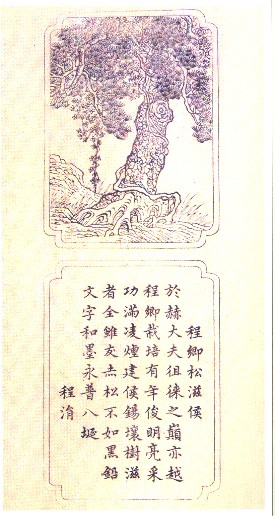 程卿松滋侯
於赫大夫徂徠之巔亦越
程卿栽培有年俊明亮采
功滿凌煙建侯錫壤樹滋
者全雖友赤松不如黑鉛
文字和墨永普八埏
程涓